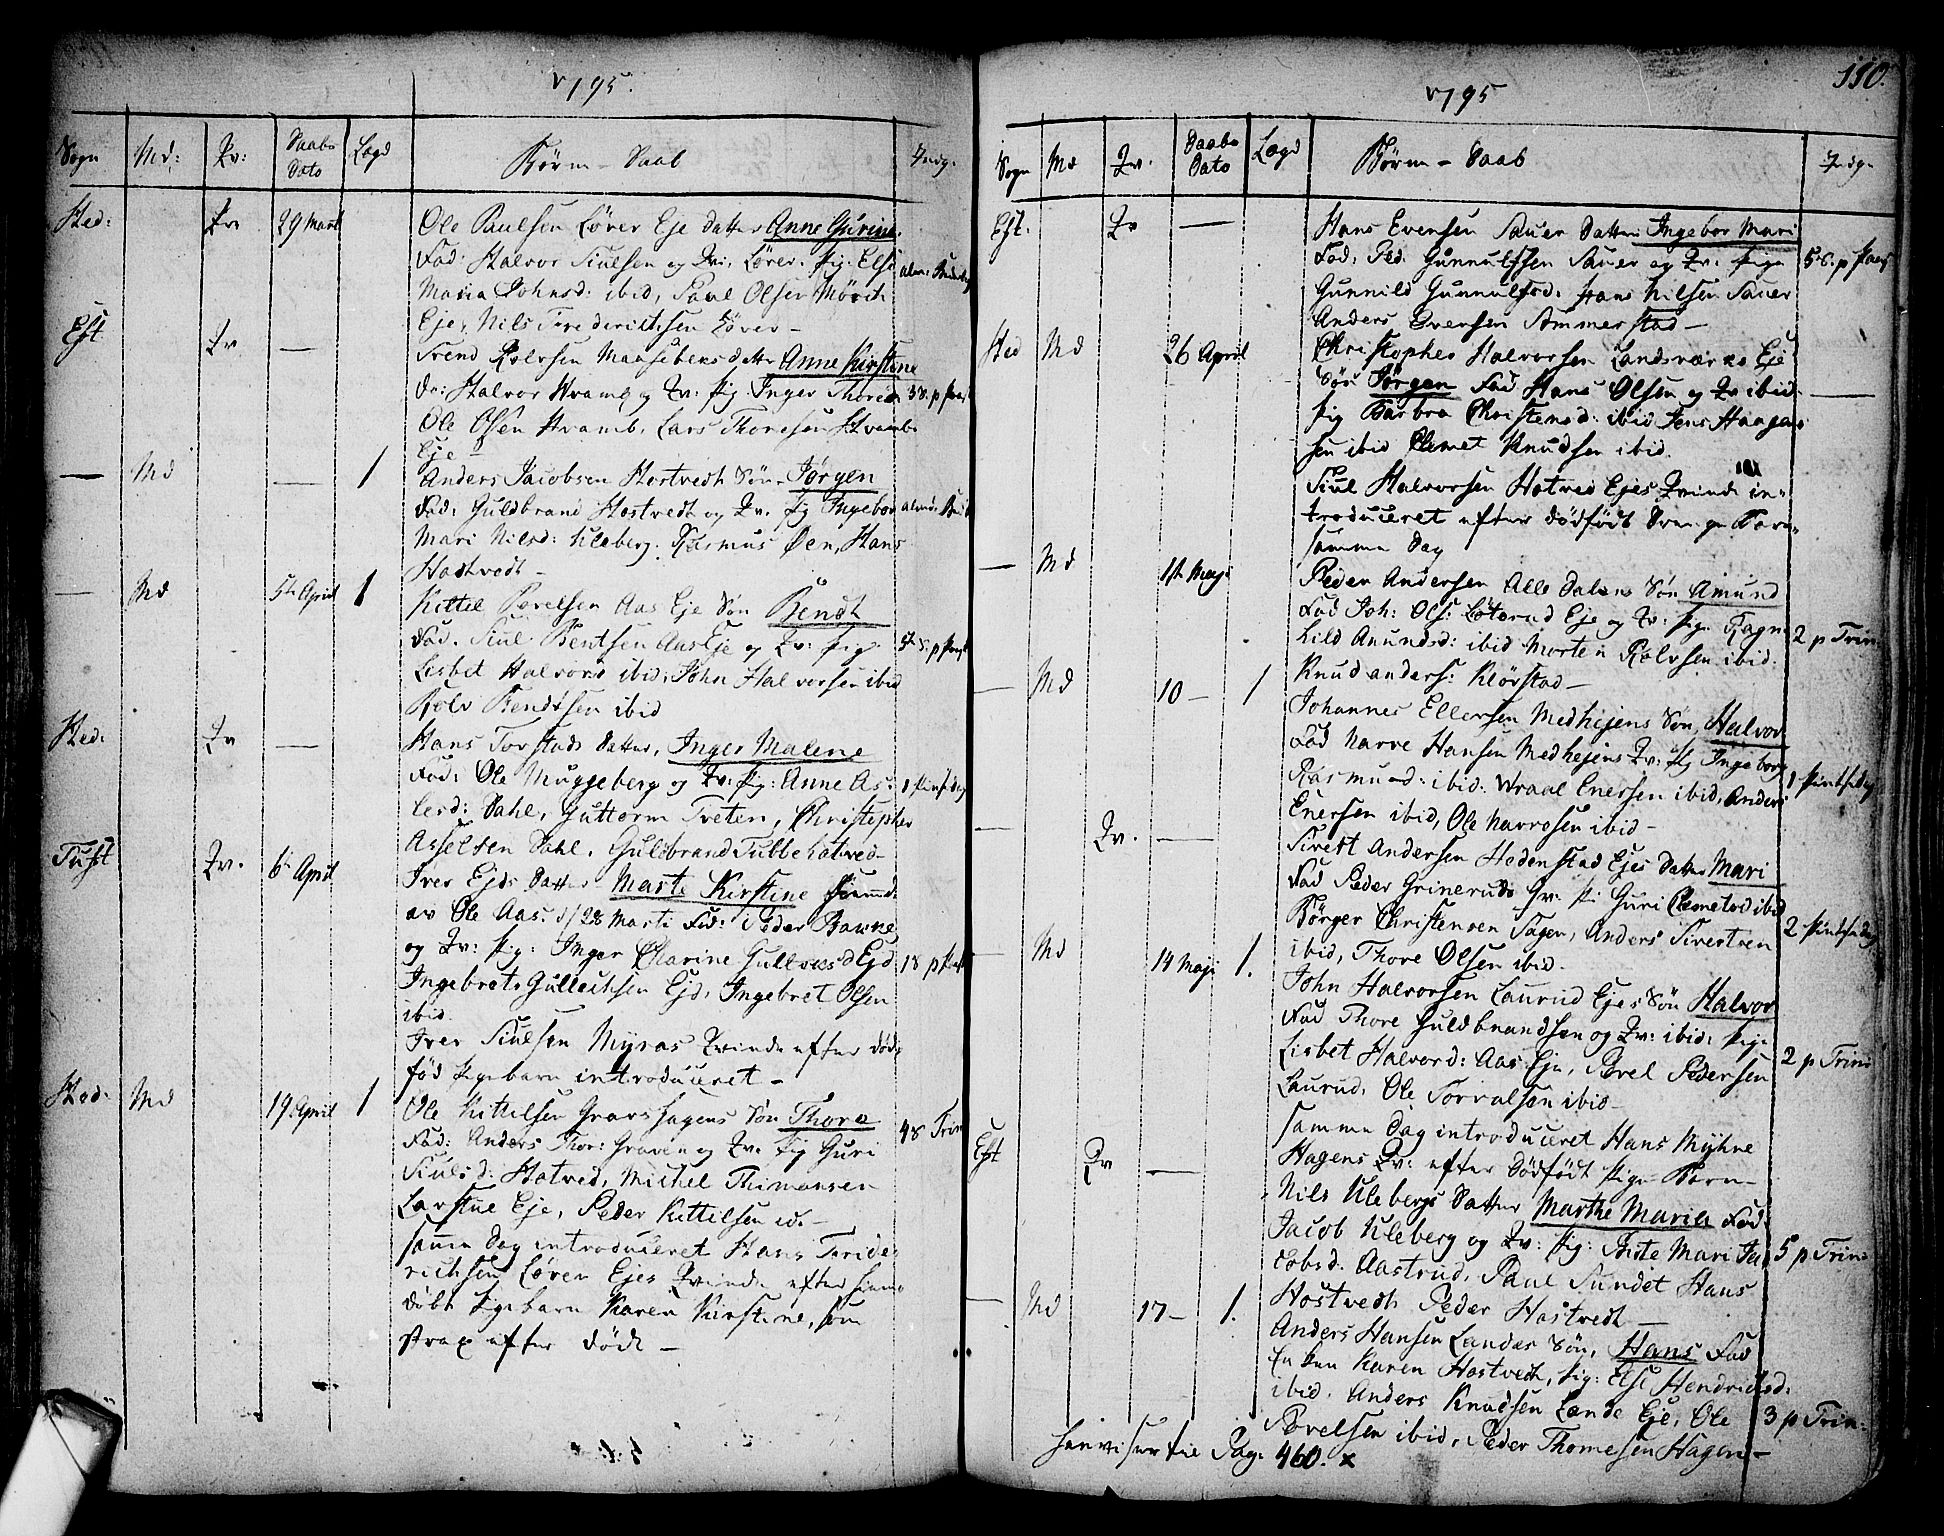 1795.
Sogn Md: Qv: Daabs Dato Lægd Børne-Daab Indg.
Hed: Qv 29 Marti Ole Paulsen Lører Eje Datter Anne Gurine
Fad: Halvor Siulsen og Qv: Lører. pig. Else
Maria Johnsd: ibid, Paul Olsen
Eje, Nils Frederichsen Lører –
Eft Qv — Trend Rolvsen Maaseberns datter Anne Kirstine
Halvor Hvamb og Qv: pig Inger Thores
Ole Olsen Hvamb, Lars Thoresen Hvamb
Eje –
— Md — 1 Anders Jacobsen Hostvedt Søn Jørgen
Fad: Guldbrand Hostvedt og Qv. pig Ingebor
Mari Nilsd: Uleberg. Rasmus Øen, Hans
Hostvedt –
— Md 5te April 1 Kittil Povelsen Aas Eje Søn Bendt
Fad. Siul Bentsen Aas Eje og Qv: pig
Lisbet Halvord ibid, John Halvorsen ibid
Rolv Bendtsen ibid
Hed: Qv — Hans Torstads Datter, Inger Malene
Fad: Ole Muggeberg og Qv: pig: Anne As-
lesd: Dahl, Guttorm Treten, Christopher
Asselsen Dahl, Guldbrand
Tuft Qv. 6te April Iver Ejds Datter Marte Kirstine
av Ole Aas. d/28 Marti Fad: Peder Bakke
og Qv: pig: Inger Charine Gullichsd Ejd 18 p
Ingebret Gullichsen Ejd, Ingebret Olsen
ibid.
Iver Siulsen Myras Qvinde efter død-
fød pigebarn introduceret –
Hed: Md 19 April 1 Ole Kittilsen Gravshagens Søn Thore 48 Trin
Fad: Anders Thor: Graven og Qv. pig Guri
Siulsd: Hatved, Michel Thimansen
Larstue Eje, Peder Kittilsen id. –
samme Dag introduceret Hans Fride-
richsen Løren Ejes Qvinde efter hiem-
døbt pigebarn Karen Kirstine, som
strax efter døde –
1795
110.
Sogn Md Qv. Daabs Dato Lægd Børne-Daab Indg.
Eft. Qv — Hans Evensen Sauer Datter Ingebor Mari
Fad. Ped. Gunnulfsen Sauer og Qv: pige
Gunnild Gunnulfsd: Hans Nilsen Sauer
Anders Evensen Ammerstad –
Hed Md 26 April Christopher Halvorsen Landsværks Eje
Søn Jørgen Fad Hans Olsen og Qv ibid —
pig Barbra Christensd: ibid Jens
sen ibid Clemet Knudsen ibid.
Siul Halvorsen Hatved Ejes Qvinde in-
troduceret efter dødfødt Drenge Barn
samme Dag
— Md 1st Maji Peder Andersen Alledalens Søn Amund
Fad Joh: Ols: Løterud Eje og Qv: pig. Ragn-
hild Anundsd: ibid Morten Rolvsen ibid. 2 p Trin
Knud anders: Klørstad –
— Md 10 – 1 Johannes Ellersen Medhejens Søn, Halvor
Fad Narve Hansen Medhejens Qv: pig Ingeborg
Rasmusd: ibid. Wraal Enersen ibid, Anders
Enersen ibid, Ole Narvesen ibid –
— Qv. — Sivert Andersen Hedenstad Ejes Datter Mari
Fad Peder Grinerud pi Guri Clemetsd ibid
Børger Christensen Tagen, Anders Sivertsen
ibid, Thore Olsen ibid.
— Md 14 Maji 1. John Halvorsen Laurud Ejes Søn Halvor
Fad Thore Guldbrandsen og Qv: ibid: pige
Lisbet Halvord: Aas Eje, Povel Pedersen 2 p Trini
Laurud, Ole Torvalsen ibid –
samme Dag introduceret Hans Myhne
Hagens Qv: efter dødfødt pige Barn –
Eft Qv — Nils Ulebergs Datter Marthe Maria Fad:
Jacob Uleberg og Qv: pig: Mari Ja-
cobsd: Aastrud, Paul Sundet Hans 5 p Trin:
Hostvedt Peder Hostvedt –
— Md 17 – 1. Anders Hansen Landes Søn, Hans Fad
Enken Karen Hostvedt, pig: Else Hendrichsd:
ibid. Anders Knudsen Lande Eje, Ole 3 p Trin:
Povelsen ibid, Peder Thomesen Hagen –
henviser til Pag: 460. x